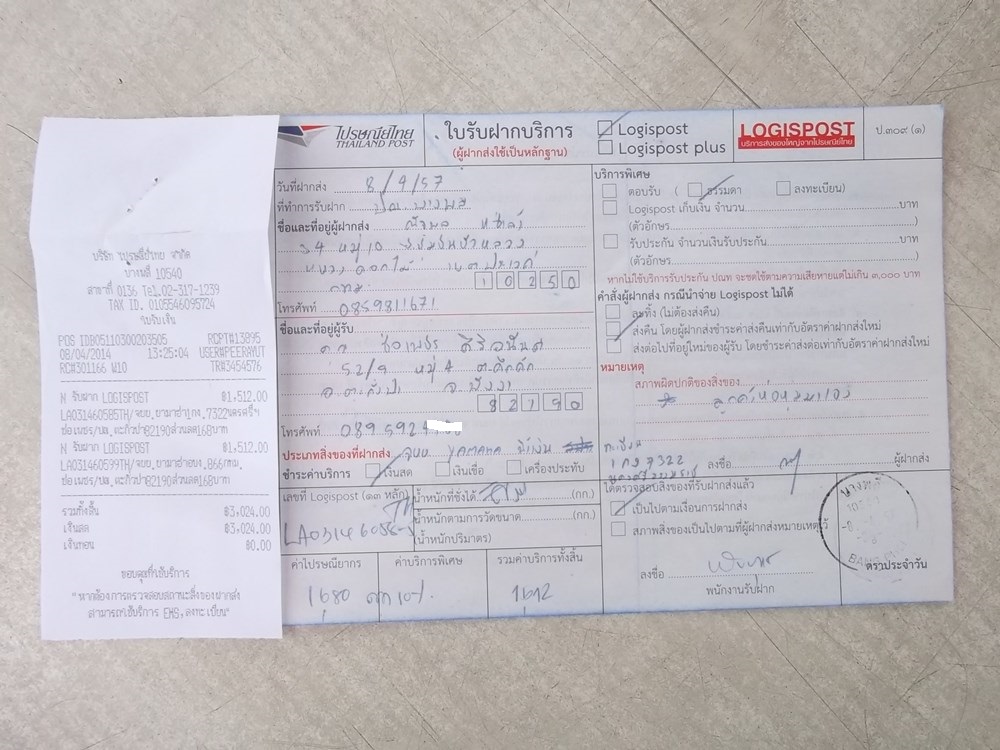 บริษัท ไปรษณีย์ไทย จำกัด
บางพลี 10540
สาขาที่ 0136 Tel.02-317-1239
TAX ID. 0105546095724
ใบรับเงิน
POS ID805110300203505 RCPT#13895
08/04/2014 13:25:04 USER#PEERAYUT
RC#301166 W10 TR#3454576
N รับฝาก LOGISPOST ฿1,512.00
LA031460585TH/จยย.ยามาฮ่า1กง.7322
ช่อเพชร/ปล.ตะกั่วป่า82190ส่วนลด168บาท
N รับฝาก LOGISPOST ฿1,512.00
LA031460599TH/จยย.ยามาฮ่า
ช่อเพชร/ปล.ตะกั่วป่า82190ส่วนลด168บาท
รวมทั้งสิ้น ฿3,024.00
เงินสด ฿3,024.00
เงินทอน ฿0.00
ขอบคุณที่ใช้บริการ
"หากต้องการตรวจสอบสถานะสิ่งของฝากส่ง
สามารถใช้บริการ EMS,ลงทะเบียน"
ไปรษณีย์ไทย
THAILAND POST
ใบรับฝากบริการ
(ผู้ฝากส่งใช้เป็นหลักฐาน)
Logispost
Logispost plus
LOGISPOST
บริการส่งของใหญ่จากไปรษณีย์ไทย
ป.๓๐๙ (๑)
วันที่ฝากส่ง 8/9/57
ที่ทำการรับฝาก
ชื่อและที่อยู่ผู้ฝากส่ง
34 หมู่ 10
หนองบอน
10250
โทรศัพท์ 0859811671
ชื่อและที่อยู่ผู้รับ
ช่อเพชร
52/9 หมู่ 4 ต.คึกคัก
อ.ตะกั่วป่า จ.พังงา
82190
โทรศัพท์
ประเภทสิ่งของที่ฝากส่ง จยย. yamaha
ชำระค่าบริการ เงินสด เงินเชื่อ เครื่องประทับ
เลขที่ Logispost (๑๓ หลัก)
น้ำหนักที่ชั่งได้ (กก.)
น้ำหนักตามการวัดขนาด (กก.)
(น้ำหนักปริมาตร)
ค่าไปรษณียากร
ค่าบริการพิเศษ
รวมค่าบริการทั้งสิ้น
1680 ลด 10%
บริการพิเศษ
ตอบรับ ( ธรรมดา ลงทะเบียน)
Logispost เก็บเงิน จำนวน บาท
(ตัวอักษร )
รับประกัน จำนวนเงินรับประกัน บาท
(ตัวอักษร )
หากไม่ใช้บริการรับประกัน ปณท จะชดใช้ตามความเสียหายแต่ไม่เกิน ๓,๐๐๐ บาท
คำสั่งผู้ฝากส่ง กรณีนำจ่าย Logispost ไม่ได้
ละทิ้ง (ไม่ต้องส่งคืน)
ส่งคืน โดยผู้ฝากส่งชำระค่าส่งคืนเท่ากับอัตราค่าฝากส่งใหม่
ส่งต่อไปที่อยู่ใหม่ของผู้รับ โดยชำระค่าส่งต่อเท่ากับอัตราค่าฝากส่งใหม่
หมายเหตุ
สภาพผิดปกติของสิ่งของ
ลูกค้าห่อหุ้มมาเอง
ทะเบียน
1กง7322
นครศรีธรรมราช
ลงชื่อ ผู้ฝากส่ง
ได้ตรวจสอบสิ่งของที่รับฝากส่งแล้ว
เป็นไปตามเงื่อนการฝากส่ง
สภาพสิ่งของเป็นไปตามที่ผู้ฝากส่งหมายเหตุไว้
ลงชื่อ
พนักงานรับฝาก
ตราประจำวัน